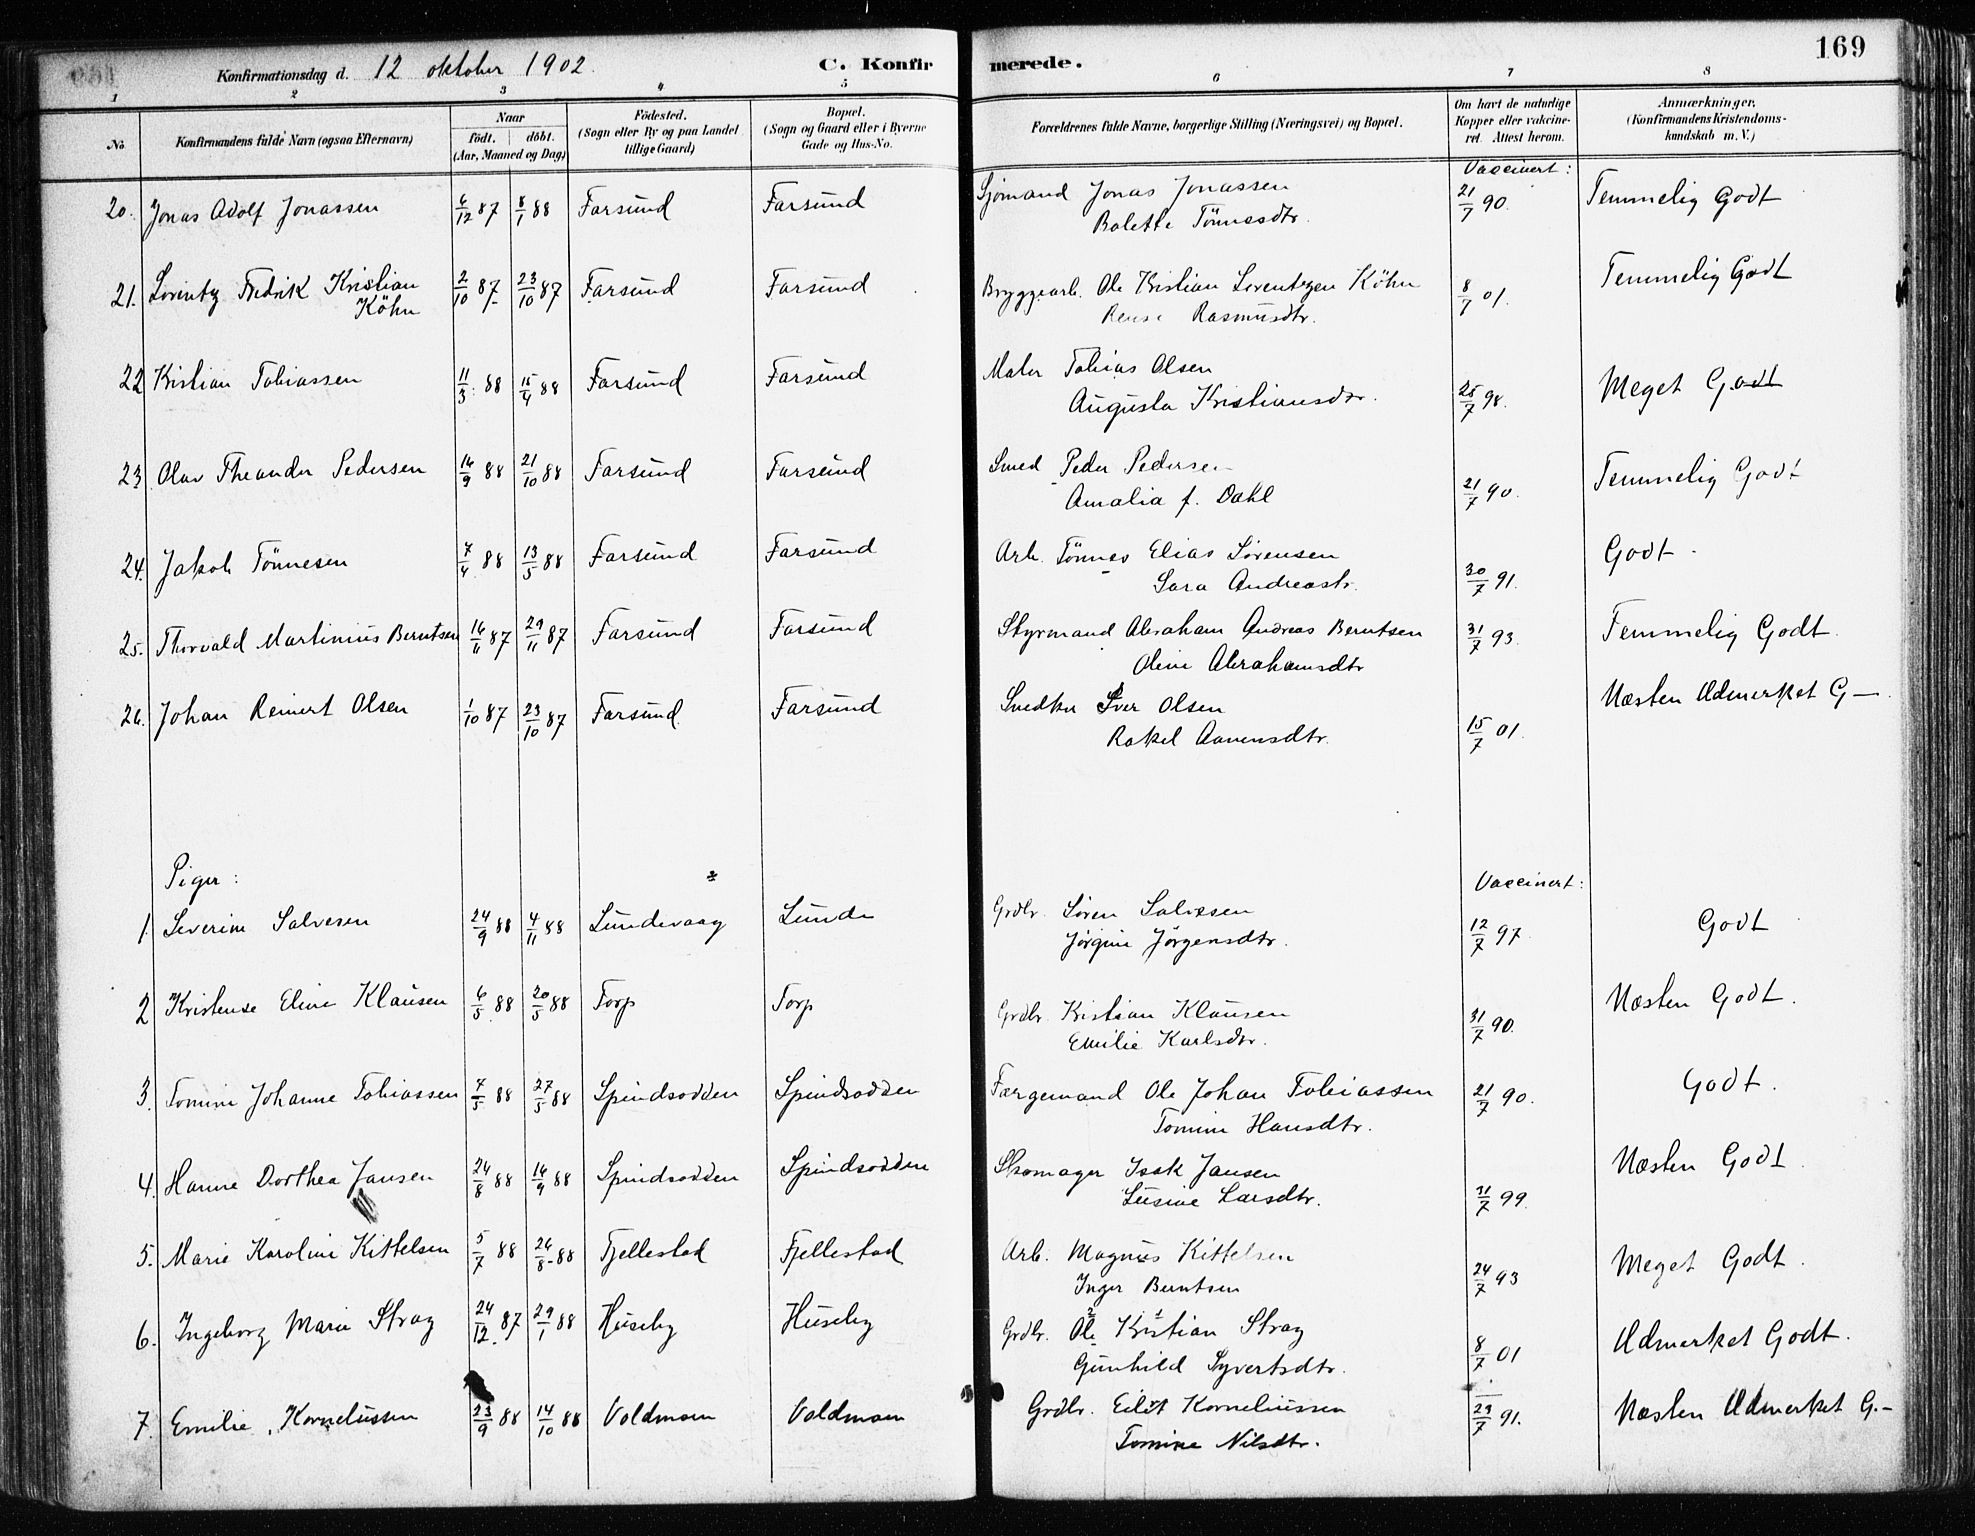 169
Konfirmationsdag d. 12 oktober 1902.
C. Konfirmerede.
1 2 3 4 5 6 7 8
No
Konfirmandens fulde Navn (ogsaa Efternavn)
Naar
født. døbt.
(Aar, Maaned og Dag)
Fødested.
(Sogn eller By og paa Landet
tillige Gaard)
Bopæl.
(Sogn og Gaard eller i Byerne
Gade og Hus-No.
Forældrenes fulde Navne, borgerlige Stilling (Næringsvei) og Bopæl.
Om havt de naturlige
Kopper eller vakcine-
ret. Attest herom.
Anmærkninger,
(Konfirmandens Kristendoms-
kundskab m. V.)
Vaccinert:
20. Jonas Adolf Jonassen 6/12 87 8/1 88 Farsund Farsund Sjømand Jonas Jonassen 21/7 90. Temmelig Godt
Bolette Tønnesdtr.
21. Lorentz Fredrik Kristian 2/10 87 23/10 87 Farsund Farsund Bryggearb. Ole Kristian Lorentzen Köhn 8/7 01. Temmelig Godt
Köhn Rasmusdtr.
22 Kristian Tobiassen 11/3 88 15/4 88 Farsund Farsund Maler Tobias Olsen 25/7 98. Meget Godt
Augusta Kristiansdtr.
23. Olav Theander Pedersen 16/9 88 21/10 88 Farsund Farsund Smed Peder Pedersen 21/7 90. Temmelig Godt
Amalia f. Dahl
24. Jakob Tønnesen 7/4 88 13/5 88 Farsund Farsund Arb. Tønnes Elias Sørensen 30/7 91. Godt.
Sara Andreastr.
25. Thorvald Martinius Berntsen 16/11 87 29/11 87 Farsund Farsund Styrmand Abraham Andreas Berntsen 31/7 93. Temmelig Godt.
Oline Abrahamsdtr
26. Johan Reinert Olsen 1/10 87 23/10 87 Farsund Farsund Snedker Iver Olsen 15/7 01. Næsten Udmerket G—
Rakel Aanensdtr.
Piger: Vaccinert:
1. Severine Salvesen 24/9 88 4/11 88 Lundevaag Lunde Grdbr. Søren Salvesen 12/7 97. Godt
Jørgine Jørgensdtr.
2 Kristense Eline Klausen 6/5 88 20/5 88 Torp Torp Grdbr. Kristian Klausen 31/7 90. Næsten Godt.
Emilie Karlsdtr.
3. Tomine Johanne Tobiassen 7/5 88 27/5 88 Spindsodden Spindsodden Færgemand Ole Johan Tobiassen 21/7 90. Godt.
Tomine Hansdtr.
4. Hanne Dorthea Jansen 24/8 88 16/9 88 Spindsodden Spindsodden Skomager Isak Jansen 31/7 99. Næsten Godt.
Lusine Larsdtr.
5. Marie Karoline Kittelsen 5/7 88 26/8 88 Fjellestad Fjellestad Arb. Magnus Kittelsen 24/7 93 Meget Godt.
Inger Berntsen
6. Ingeborg Marie Stray 24/12 87 29/1 88 Huseby Huseby Grdbr. Ole Kristian Stray 8/7 01 Udmerket Godt.
Gunhild Syvertsdtr.
7. Emilie Korneliussen 23/9 88 14/10 88 Voldmoen Voldmoen Grdbr. Eilit Korneliussen 29/7 91. Næsten Udmerket G.-
Tomine Nilsdtr.